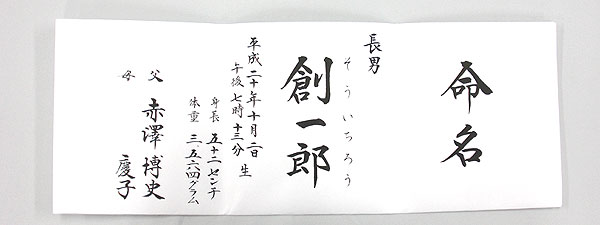 命名
長男
そういちろう
創一郎
平成二十年十月二日
午後七時十三分 生
身長 五十二センチ
体重 三、五六四グラム
父 赤澤 博史
母 慶子